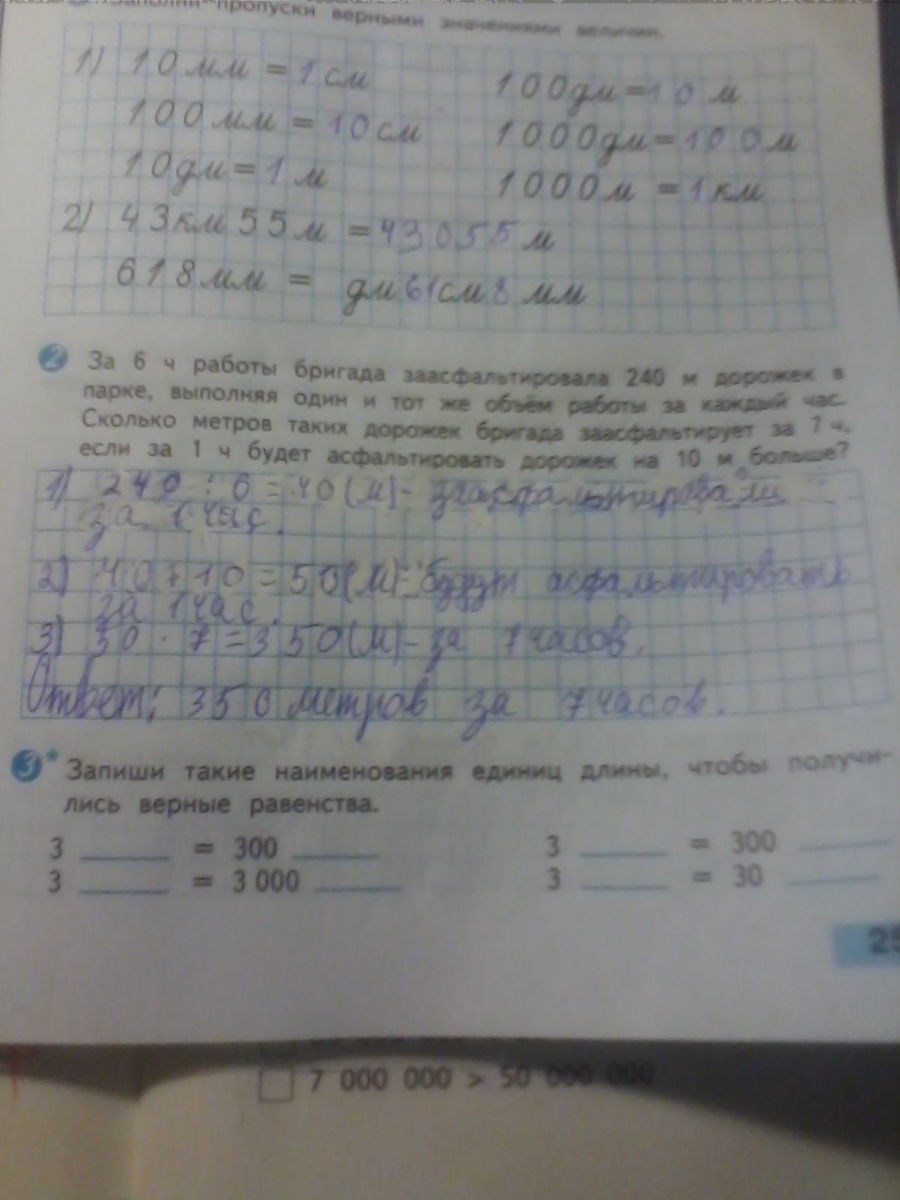 Заполни пропуски верными значениями величин.
1) 10 мм = 1 см 100 дм = 10 м
100 мм = 10 см 1000 дм = 100 м
10 дм = 1 м 1000 м = 1 км
2) 43 км 55 м = 43055 м
618 мм = дм 61 см 8 мм
2 За 6 ч работы бригада заасфальтировала 240 м дорожек в
парке, выполняя один и тот же объём работы за каждый час.
Сколько метров таких дорожек бригада заасфальтирует за 7 ч,
если за 1 ч будет асфальтировать дорожек на 10 м больше?
1) 240 : 6 = 40 (м) - заасфальтировали
за 1 час.
2) 40 + 10 = 50 (м) - будут асфальтировать
за 1 час.
3) 50 · 7 = 350 (м) - за 7 часов.
Ответ: 350 метров за 7 часов.
3* Запиши такие наименования единиц длины, чтобы получи-
лись верные равенства.
3 ______ = 300 ______ 3 ______ = 300 ______
3 ______ = 3 000 ______ 3 ______ = 30 ______
25
7 000 000 > 50 000 000